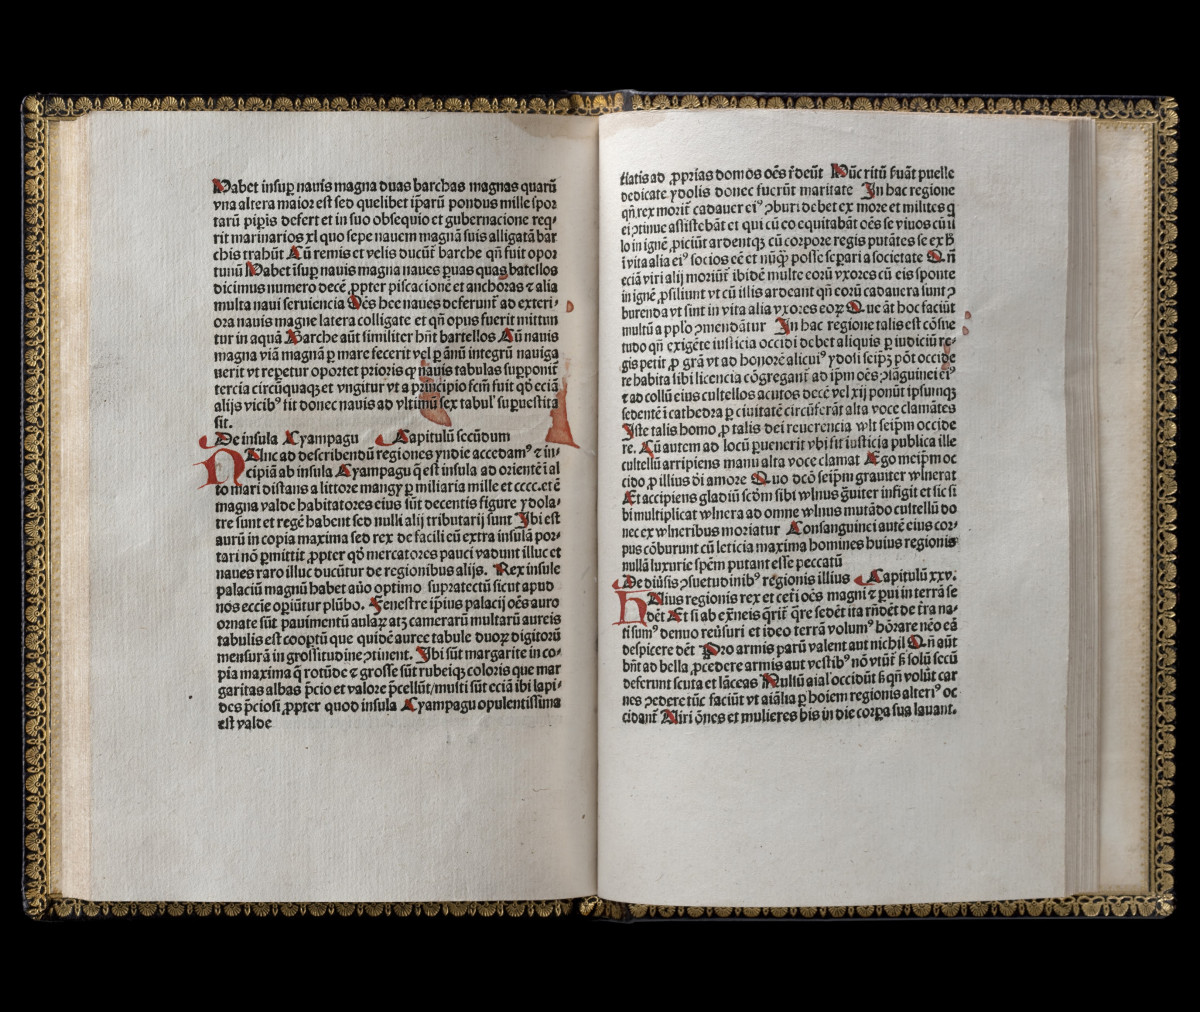 Habet insup nauis magna duas barchas magnas quarū
vna altera maior est sed quelibet ipārū pondus mille spor
tarū pipis defert et in suo obsequio et gubernacione reqͥ⸗
rit marinarios xl quo sepe nauem magnā suis alligatā bar
chis trahūt Cū remis et velis ducūt barche qn̄ fuit opor
tunū Habet īsup nauis magna naues puas quas batellos
dicimus numero decē ꝓpter piscacionē et anchoras ⁊ alia
multa naui seruiencia Oēs hee naues deferunt̄ ad exteri⸗
ora nauis magne latera colligate et qn̄ opus fuerit mittun
tur in aquā Barche aūt similiter hn̄t bartellos Cū nauis
magna viā magnā ꝑ mare fecerit vel ꝑ ānū integrū nauiga
uerit vt repetur oportet prioris ꝙ nauis tabulas supponit̄
tercia circūquaqꝫ et vngitur vt a principio fcm̄ fuit qd̄ eciā
alijs vicibꝰ fit donec nauis ad vltimū sex tabul' supuestita
sit.
De insula Cyampagu Capitulū secūdum
NVnc ad describendū regiones yndie accedamꝰ ⁊ in⸗
cipiā ab insula Cyampagu q̄ est insula ad orientē ī al
to mari distans a littore mangy ꝑ miliaria mille et cccc. et ē
magna valde habitatores eius sūt decentis figure ydola⸗
tre sunt et regē habent sed nulli alij tributarij sunt Ibi est
aurū in copia maxima sed rex de facili eū extra insulā por⸗
tari nō ꝑmittit ꝓpter qd̄ mercatores pauci vadunt illuc et
naues raro illuc ducūtur de regionibus alijs. Rex insule
palaciū magnū habet auō optimo supratectū sicut apud
nos eccīe opiūtur plūbo. Fenestre ipīus palacij oēs auro
ornate sūt pauimentū aulaꝝ atꝫ camerarū multarū aureis
tabulis est cooptū que quidē auree tabule duoꝝ digitorū
mensurā in grossitudine ꝯtinent. Ibi sūt margarite in co⸗
pia maxima q̄ rotūde ⁊ grosse sūt rubeiqꝫ coloris que mar
garitas albas p̄cio et valore p̄cellūt/multi sūt eciā ibi lapi⸗
des p̄ciosi ꝓpter quod insula Cyampagu opulentissima
est valde
tiatis ad ꝓprias domos oēs r̄deūt Hūc ritū ẜuāt puelle
dedicate ydolis donec fuerūt maritate In hac regione
qn̄ rex morit̄ cadauer eiꝰ ꝯburi debet ex more et milites q
ei ꝯtinue assistebāt et qui cū eo equitabāt oēs se viuos cū il
lo in ignē ꝓiciūt ardentqꝫ cū corpore regis putātes se ex h̄
ī vita alia eiꝰ socios eē et nūqꝫ posse separi a societate Qn̄
eciā viri alij moriūt̄ ibidē multe eorū vxores cū eis sponte
in ignē ꝓsiliunt vt cū illis ardeant qn̄ eorū cadauera sunt ꝯ
burenda vt sint in vita alia vxores eoꝝ Que āt hoc faciūt
multū a pplo ꝯmendātur In hac regione talis est cōsue
tudo qn̄ exigēte iusticia occidi debet aliquis ꝑ iudiciū re⸗
gis petit ꝓ grā vt ad honorē alicuiꝰ ydoli seipꝫ pōt occide
re habita sibi licencia cōgregant̄ ad ipm̄ oēs ꝯsanguinei eiꝰ
⁊ ad collū eius cultellos acutos decē vel xij ponūt ipsumqꝫ
sedentē ī cathedra ꝑ ciuitatē circūferāt alta voce clamātes
Iste talis homo ꝓ talis dei reuerencia wlt seipm̄ occide
re. Cū autem ad locū puenerit vbi fit iusticia publica ille
cultellū arripiens manu alta voce clamat Ego meipm̄ oc
cido ꝓ illius d̄i amore Quo dcō seipm̄ grauiter wlnerat
Et accipiens gladiū scd̄m sibi wlnus ḡuiter infigit et sic si
bi multiplicat wlnera ad omne wlnus mutādo cultellū do
nec ex wlneribus moriatur Consanguinei autē eius cor⸗
pus cōburunt cū leticia maxima homines huius regionis
nullā luxurie spēm putant esse peccatū
De diūsis ꝯsuetudinibꝰ regionis illius Capitulū xxv.
HVius regionis rex et ceti oēs magni ⁊ pui in terrā se
dēt Et si ab ex̄neis q̄rit̄ q̄re sedēt ita rn̄dēt de t̄ra na⸗
ti sumꝰ denuo reūsuri et ideo terrā volumꝰ hōrare nēo eā
despicere dēt Pro armis parū valent aut nichil Qn̄ aūt
hn̄t ad bella ꝓcedere armis aut vestibꝰ nō vtūt̄ ẜ solū secū
deferunt scuta et lāceas Nullū aīal occidūt ẜ qn̄ volūt car
nes ꝯedere tūc faciūt vt aīalia ꝑ hoīem regionis alteriꝰ oc
cidant̄ Viri ōnes et mulieres bis in die corpa sua lauant.